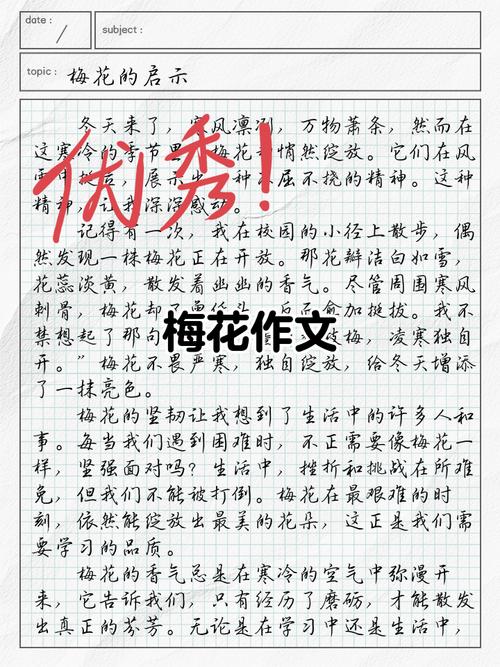 date :
subject :
topic : 梅花的启示
冬天来了，寒风凛冽，万物萧条，然而在
这寒冷的季节里，梅花却悄然绽放。它们在风
中挺立，展示出一种不屈不挠的精神。这种
精神，让我深深感动。
优秀！
记得有一次，我在校园的小径上散步，偶
然发现一株梅花正在开放。那花瓣洁白如雪，
花蕊淡黄，散发着幽幽的香气。尽管周围寒风
刺骨，梅花却，反而愈加挺拔。我不
禁想起了那句梅，凌寒独自
梅花作文
开。”梅花不畏严寒，独自绽放，给冬天增添
了一抹亮色。
梅花的坚韧让我想到了生活中的许多人和
事。每当我们遇到困难时，不正需要像梅花一
样，坚强面对吗？生活中，挫折和挑战在所难
免，但我们不能被打倒。梅花在最艰难的时
刻，依然能绽放出最美的花朵，这正是我们需
要学习的品质。
梅花的香气总是在寒冷的空气中弥漫开
来，它告诉我们，只有经历了磨砺，才能散发
出真正的芬芳。无论是在学习中还是生活中，